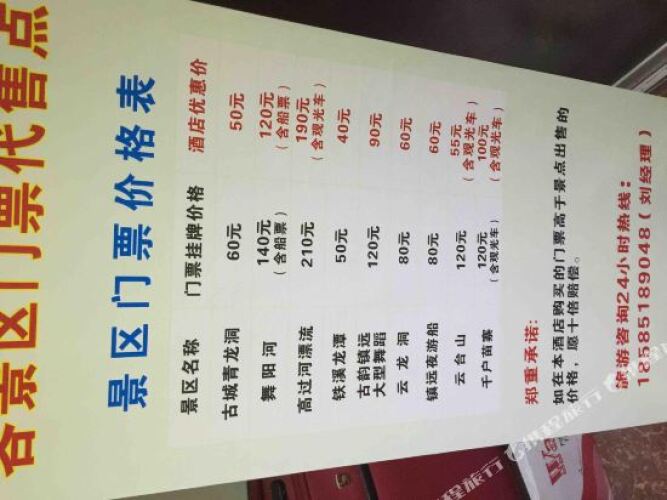 各景区门票代售点
景区门票价格表
景区名称 门票挂牌价格 酒店优惠价
古城青龙洞 60元 50元
舞阳河 140元 120元
(含船票) (含船票)
高过河漂流 210元 190元
(含观光车)
铁溪龙潭 50元 40元
古韵镇远
大型舞蹈 120元 90元
云龙洞 80元 60元
镇远夜游船 80元 60元
云台山 120元 55元
(含观光车)
千户苗寨 120元 100元
(含观光车) (含观光车)
郑重承诺:
如在本酒店购买的门票高于景点出售的
价格,愿十倍赔偿。
旅游咨询24小时热线:
18585189048(刘经理)
携程旅行